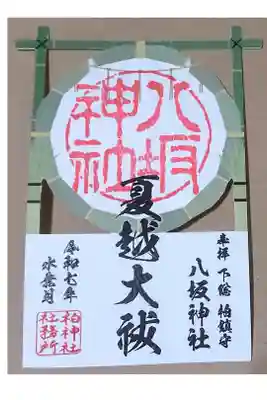 八坂
神社
夏越大祓
奉拝 下総 柏鎮守
八坂神社
令和七年
水無月
柏神社
社務所